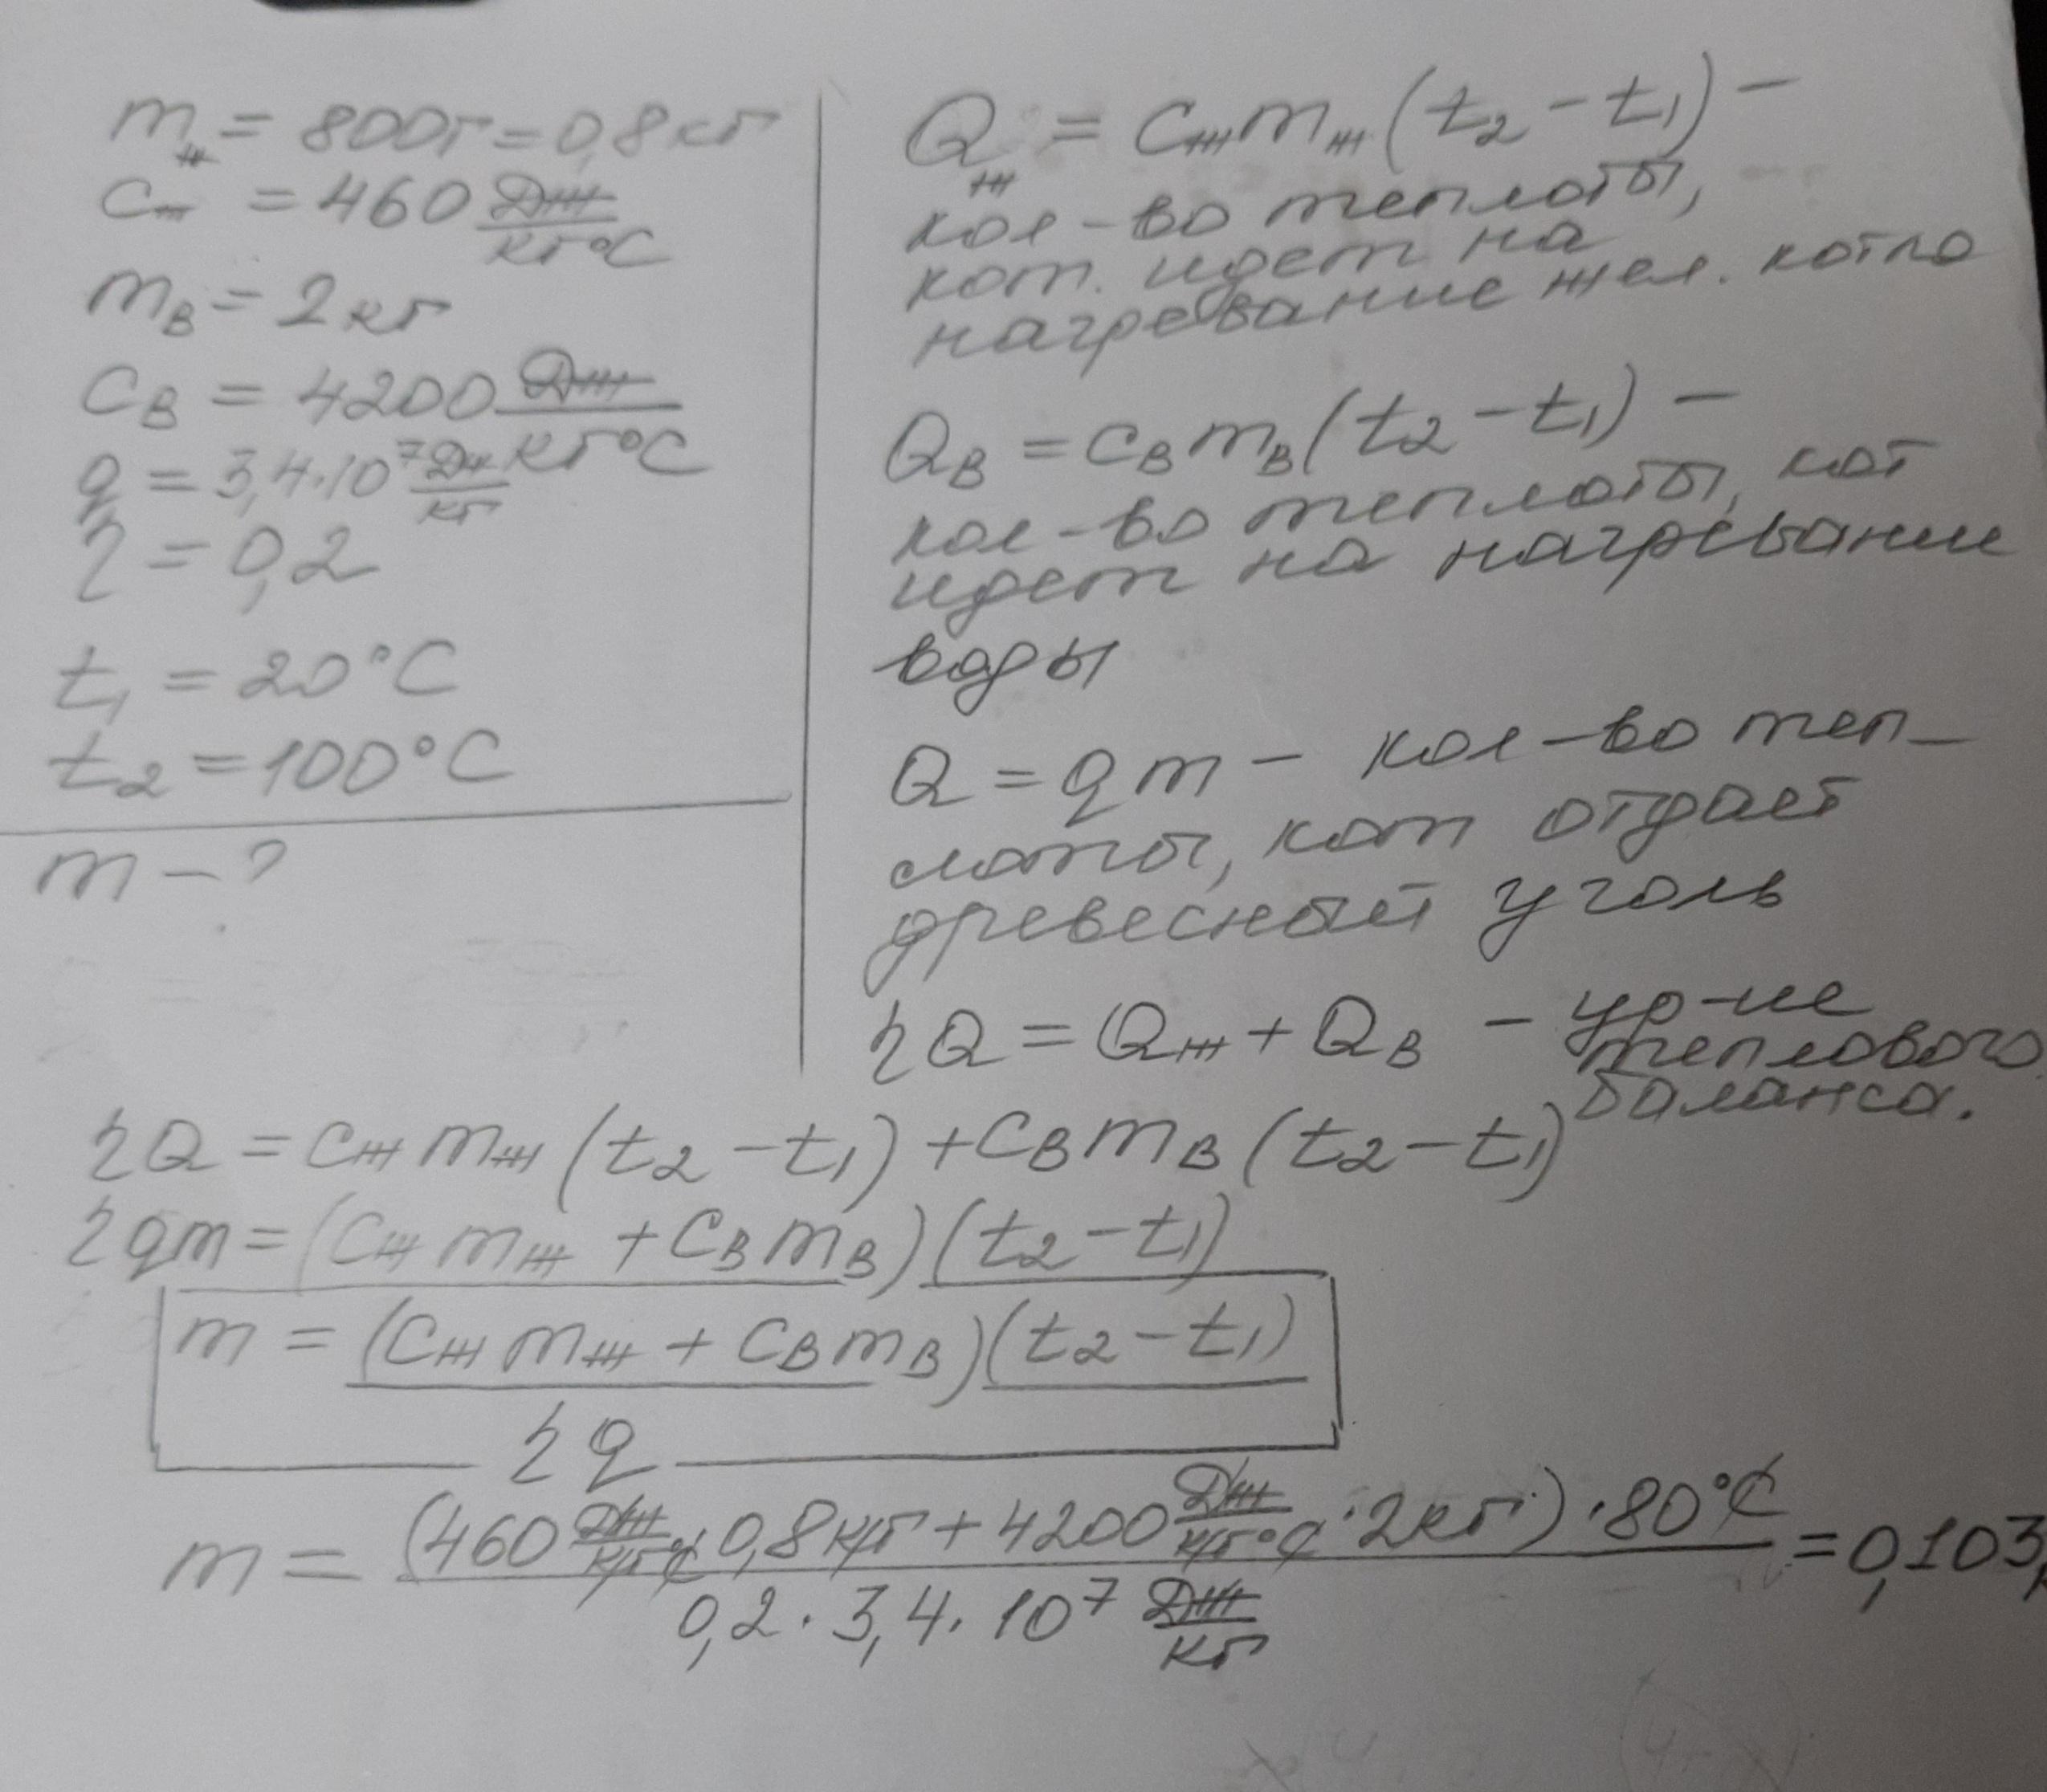 mж = 800г = 0,8 кг
cж = 460 Дж/кг°C
mв = 2 кг
cв = 4200 Дж/кг°C
q = 3,4·10⁷ Дж/кг
η = 0,2
t₁ = 20°C
t₂ = 100°C
m – ?
Qж = cжmж(t₂ – t₁) –
кол-во теплоты,
кот. идет на
нагревание жел. котла
Qв = cвmв(t₂ – t₁) –
кол-во теплоты, кот
идет на нагревание
воды
Q = qm – кол-во теп-
лоты, кот отдает
древесный уголь
ηQ = Qж + Qв – ур-ие
теплового
баланса.
ηQ = cжmж(t₂ – t₁) + cвmв(t₂ – t₁)
ηqm = (cжmж + cвmв)(t₂ – t₁)
m = (cжmж + cвmв)(t₂ – t₁) / ηq
m = (460 Дж/кг°C · 0,8 кг + 4200 Дж/кг°C · 2 кг) · 80°C / 0,2 · 3,4 · 10⁷ Дж/кг = 0,103